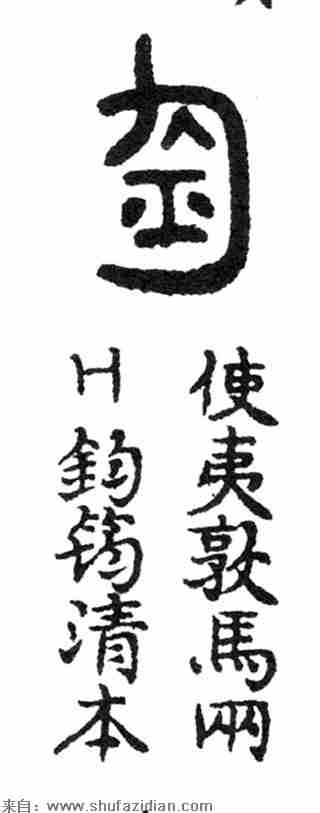 使夷敦馬兩
鈞筠清本
来自：www.shufazidian.com